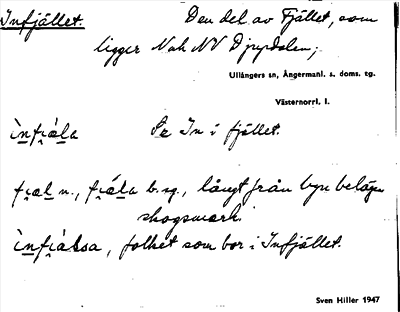 Infjället. Den del av Fjället, som
ligger N och NV Djupdalen;
Ullångers sn, Ångermanl. s. doms. tg.
Västernorrl. l.
ìnfi̯ála Se In i fjället.
fi̯æl n., fi̯ála b. sg., långt från byn belägen
skogsmark.
ìnfi̯álsa, folket som bor i Infjället.
Sven Hiller 1947